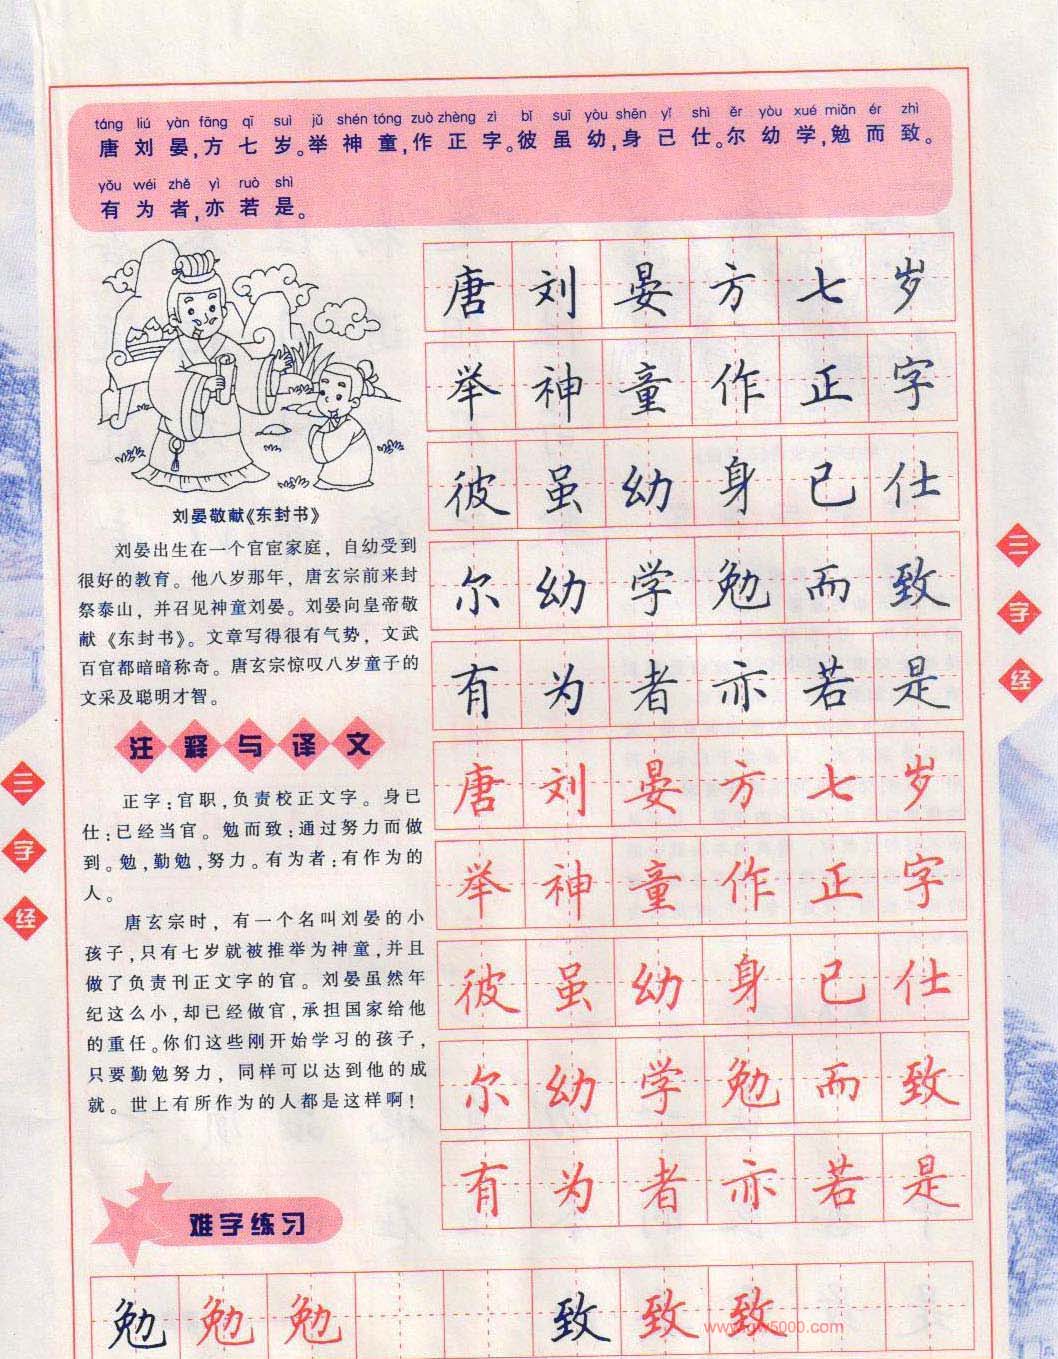 táng liú yàn fāng qī suì jǔ shén tóng zuò zhèng zì bǐ suī yòu shēn yǐ shì ěr yòu xué miǎn ér zhì
唐刘晏,方七岁。举神童,作正字。彼虽幼,身已仕。尔幼学,勉而致。
yǒu wéi zhě yì ruò shì
有为者,亦若是。
刘晏敬献《东封书》
刘晏出生在一个官宦家庭，自幼受到
很好的教育。他八岁那年，唐玄宗前来封
祭泰山，并召见神童刘晏。刘晏向皇帝敬
献《东封书》。文章写得很有气势，文武
百官都暗暗称奇。唐玄宗惊叹八岁童子的
文采及聪明才智。
注释与译文
正字:官职,负责校正文字。身已
仕:已经当官。勉而致:通过努力而做
到。勉,勤勉,努力。有为者:有作为的
人。
唐玄宗时，有一个名叫刘晏的小
孩子,只有七岁就被推举为神童,并且
做了负责刊正文字的官。刘晏虽然年
纪这么小,却已经做官,承担国家给他
的重任。你们这些刚开始学习的孩子,
只要勤勉努力，同样可以达到他的成
就。世上有所作为的人都是这样啊!
唐刘晏方七岁
举神童作正字
彼虽幼身已仕
尔幼学勉而致
有为者亦若是
唐刘晏方七岁
举神童作正字
彼虽幼身已仕
尔幼学勉而致
有为者亦若是
三字经
三字经
难字练习
勉勉勉 致致致
www.gw5000.com